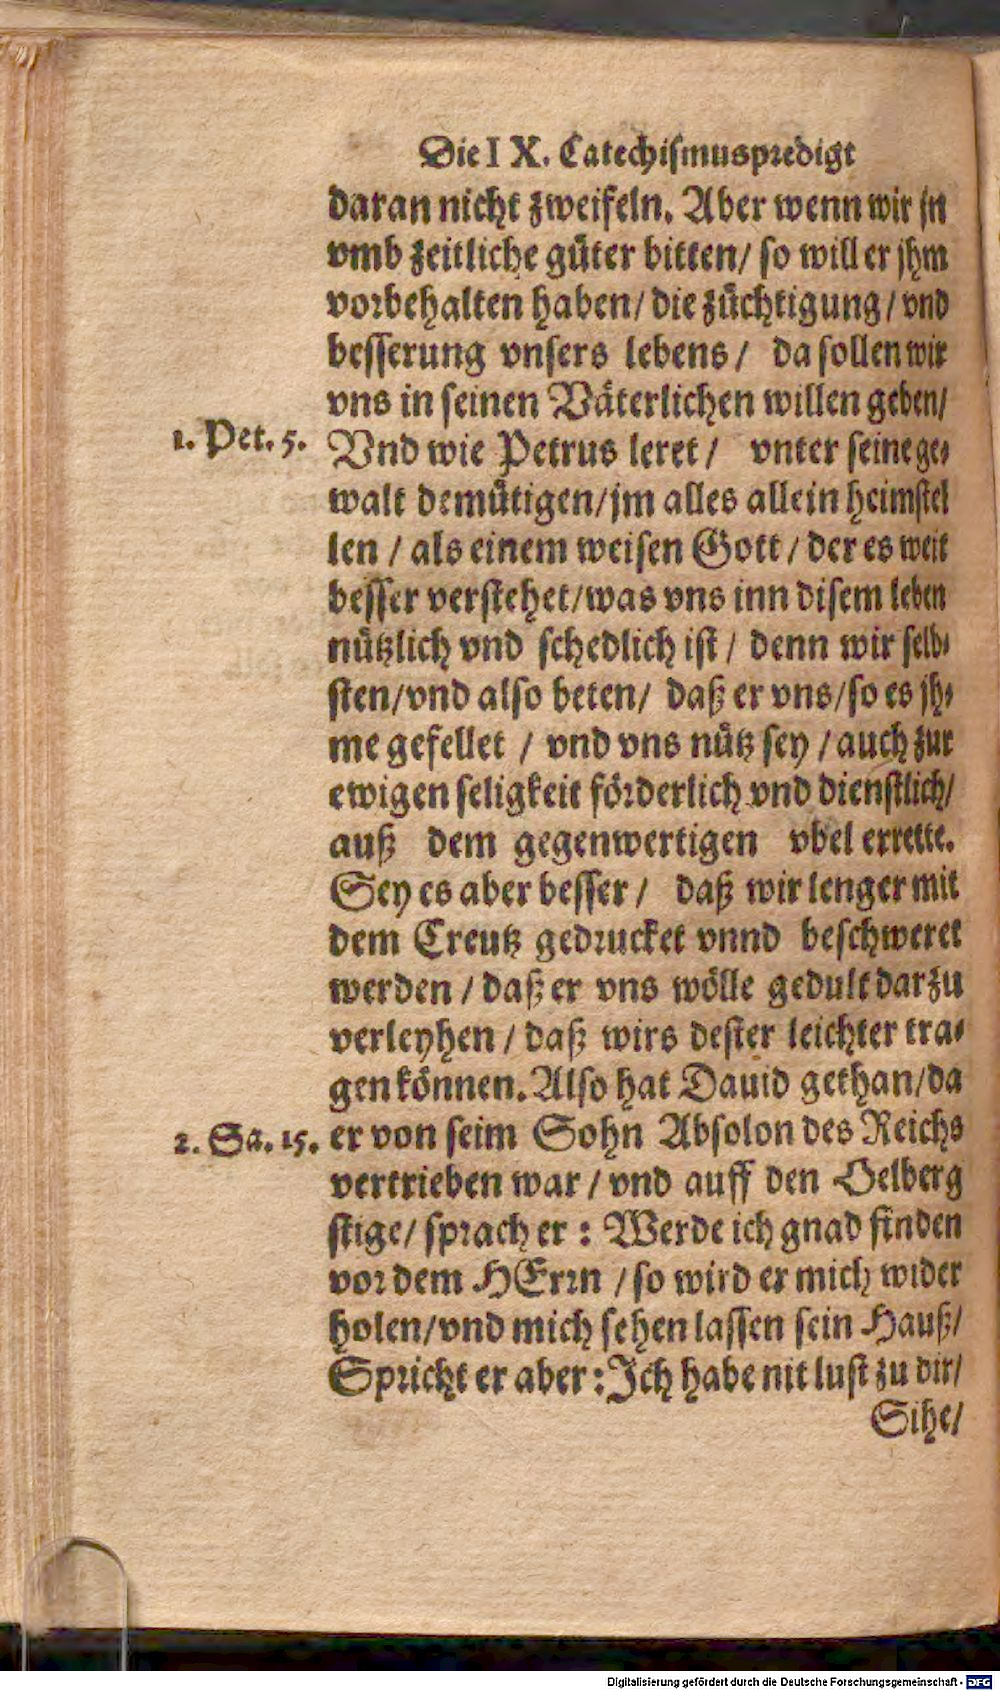 Die IX. Catechismuspredigt
daran nicht zweifeln. Aber wenn wir jn
vmb zeitliche güter bitten/ so will er jhm
vorbehalten haben/ die züchtigung/ vnd
besserung vnsers lebens/ da sollen wir
vns in seinen Väterlichen willen geben/
1. Pet. 5. Vnd wie Petrus leret/ vnter seine ge-
walt demütigen/ jm alles allein heimstel
len/ als einem weisen Gott/ der es weit
besser verstehet/ was vns inn disem leben
nützlich vnd schedlich ist/ denn wir selb-
sten/ vnd also beten/ daß er vns/ so es jh-
me gefellet/ vnd vns nütz sey/ auch zur
ewigen seligkeit förderlich vnd dienstlich/
auß dem gegenwertigen vbel errette.
Sey es aber besser/ daß wir lenger mit
dem Creutz gedrucket vnnd beschweret
werden/ daß er vns wölle gedult darzu
verleyhen/ daß wirs dester leichter tra-
gen können. Also hat Dauid gethan/ da
2. Sa. 15. er von seim Sohn Absolon des Reichs
vertrieben war/ vnd auff den Oelberg
stige/ sprach er: Werde ich gnad finden
vor dem HErrn/ so wird er mich wider
holen/ vnd mich sehen lassen sein Hauß/
Spricht er aber: Ich habe nit lust zu dir/
Sihe/
Digitalisierung gefördert durch die Deutsche Forschungsgemeinschaft - DFG